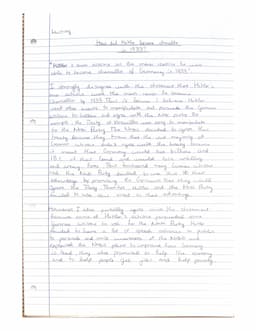 History
How did Hitler become chancellor
1933?
"Hitler's own actions was the main reason he was
able to become chancellor of Germany in 1933"
I strongly disagree with the statement that Hitler's
own actions was the main reason he became
Chancellor by 1933. This is because I believe Hitler
used other events to manipulate and persuade the German
citizens to believe and agree with the Nazi party. For
example, the Treaty of Versailles was used to manipulate
to the Nazi Party. The Nazis decided to agree this
treaty because they knew that the vast majority of
German citizens didn't agree with the treaty because
it meant that Germany would lose billions and
13% of their land and would lose military
and army. Nazi Part
the Nazi Party decided to use this to their
advantage by promising the Germans that they would
ignore the Treaty. Therefore Hitler and the Nazi Party
decided to use this event to their advantage.
However, I also partially agree with the statement
because some of Hitler's actions persuaded some
German citizens to vote for the Nazi Party. Hitler
decided to have a lot of speech in public
to persuade and make awareness of the Nazis and
explained the Nazis plans to improve how Germany
is. They also promised to help the economy
and to help people get jobs and help poverty.